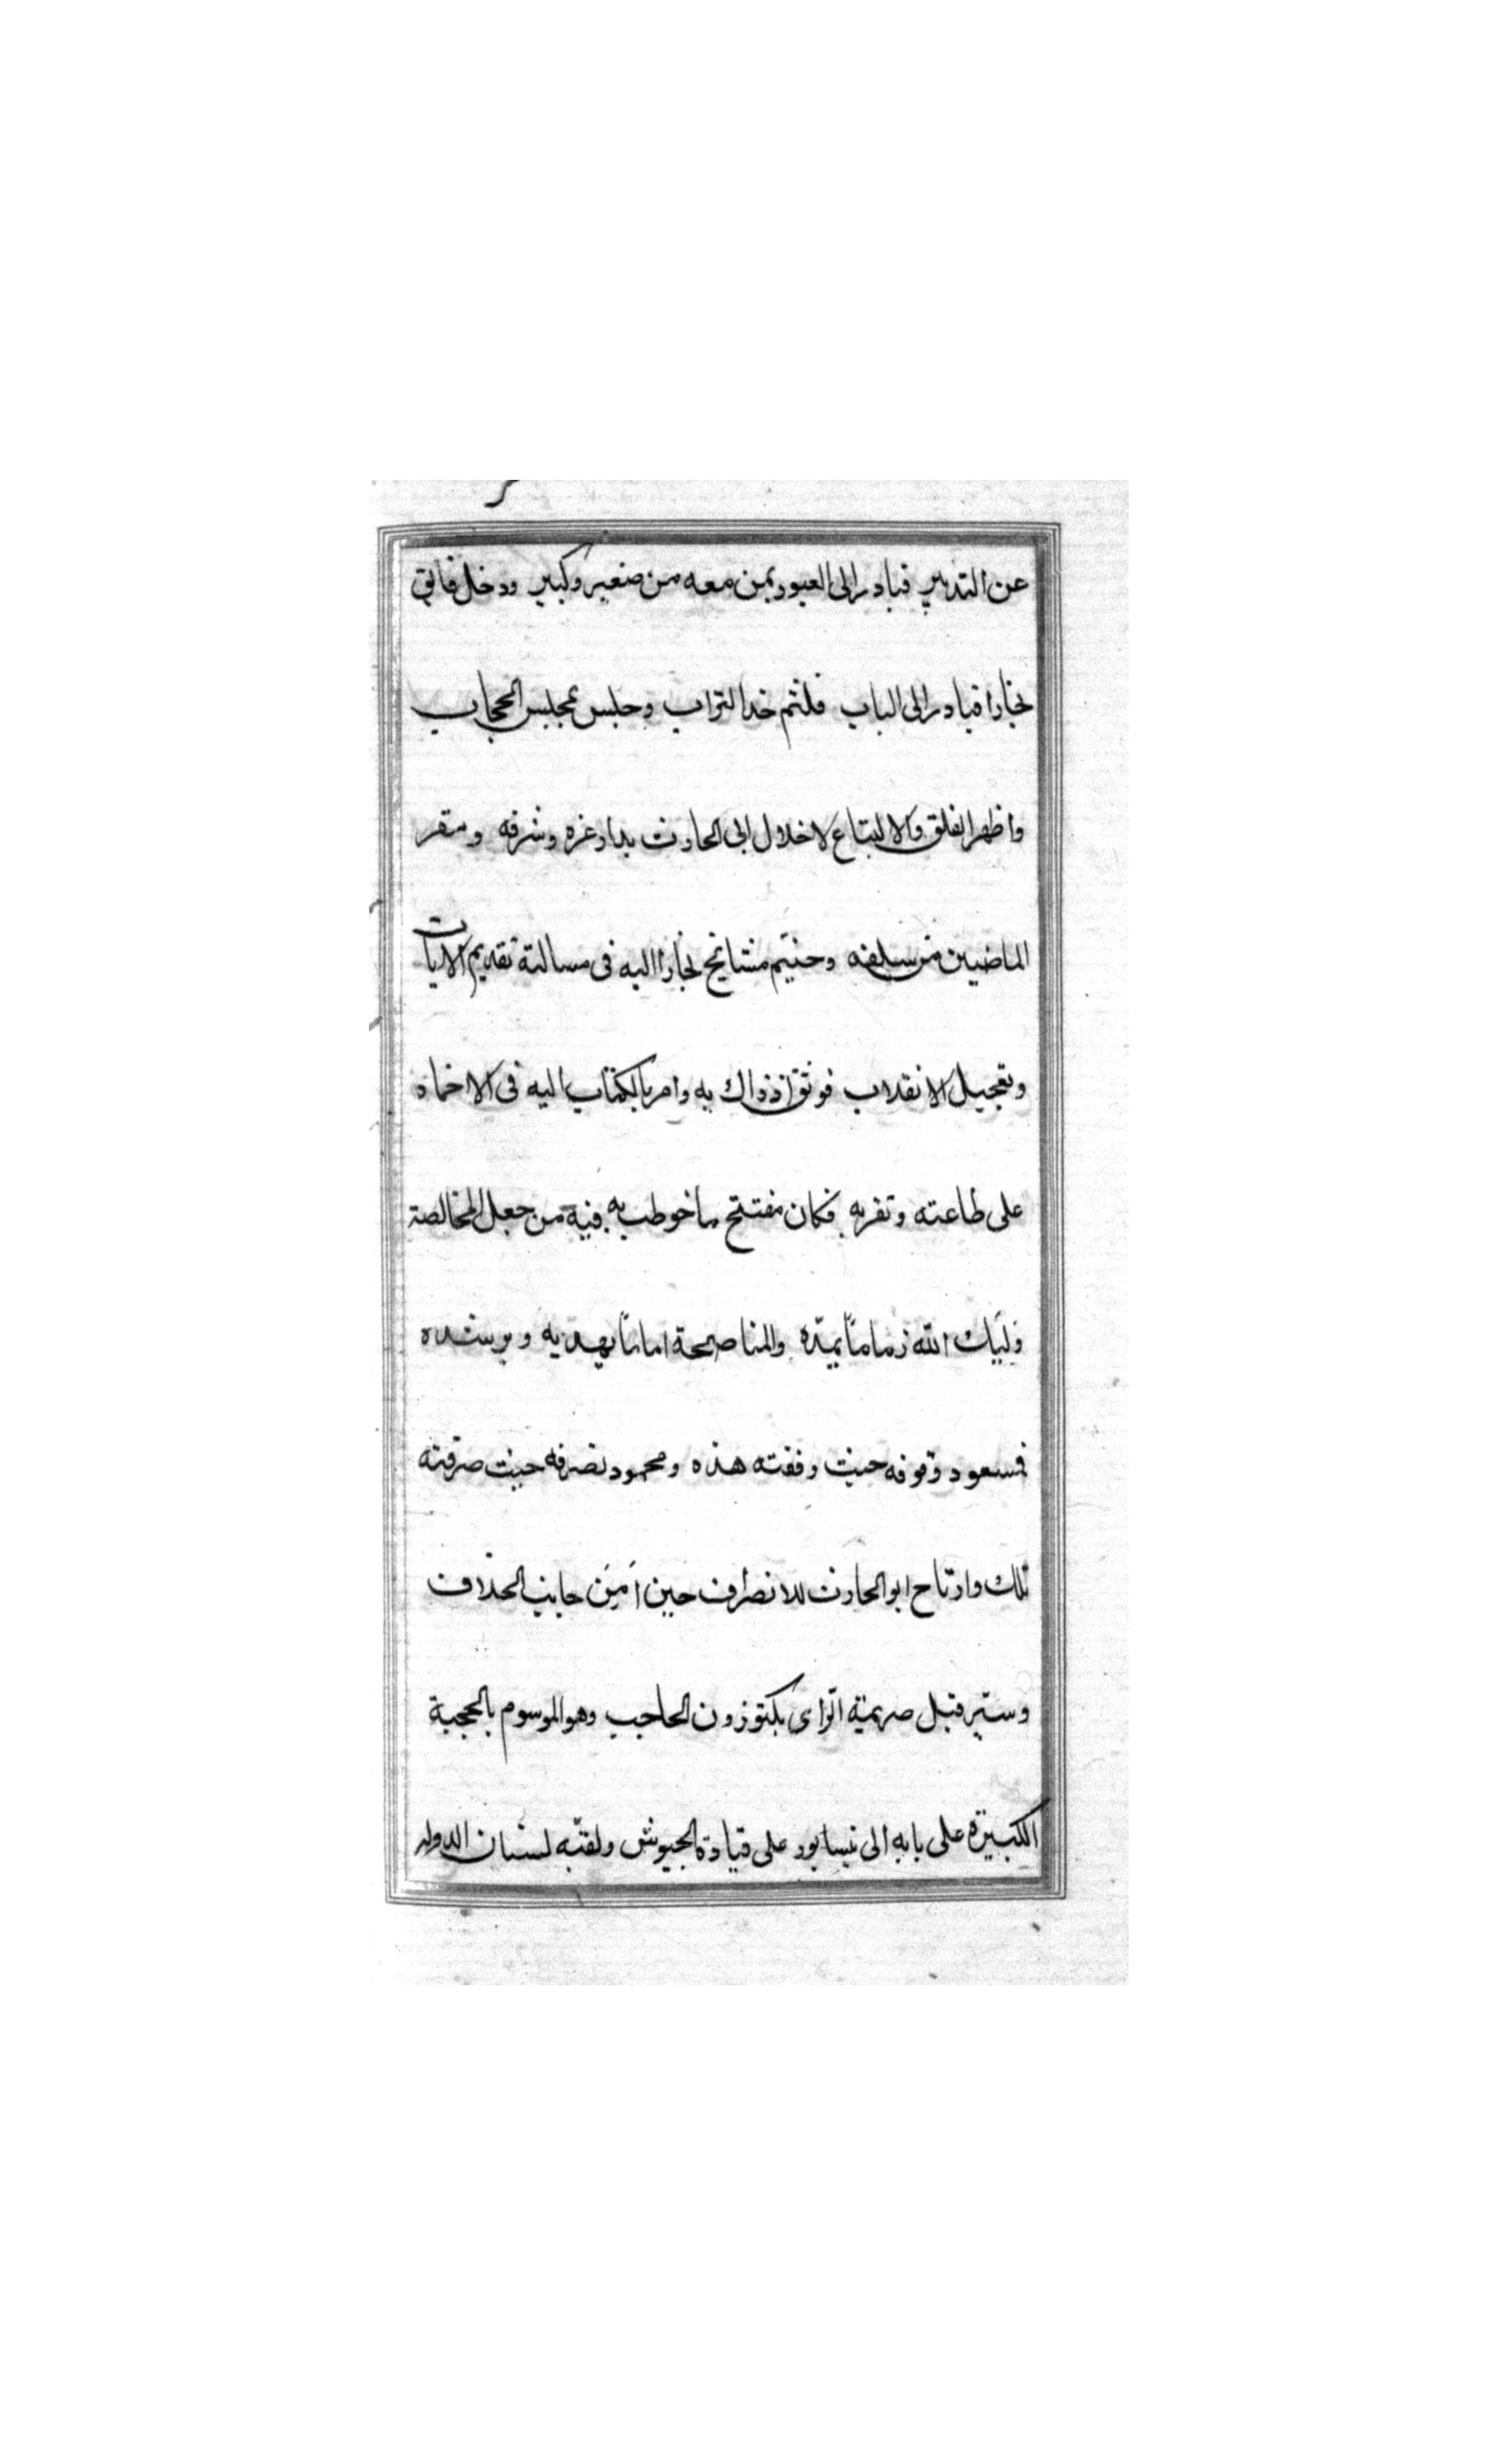 عن التدبير فبادر الى العبور بمن معه من صغير وكبير ودخل فايق
بخارا فبادر الى الباب فلثم خد التراب وجلس مجلس الحجاب
واظهر القلق والالتياع لاخلال ابى الحارث بدار عزه وشرفه ومقر
الماضيين من سلفه وحثيم مشايخ بخارا اليه فى مسالته تقديم الاياب
وتعجيل الانقلاب فوثق اذ ذاك به وامر بالكتاب اليه فى الاخماد
على طاعته وتقربه فكان مفتتح ما خوطب به فيه من جعل المخالصة
وليك الله زماماً يمدّه والمناصحة اماماً يهديه ويرشده
فمسعود وقوفه حيث وقفته هذه ومحمود تصرفه حيث صرّفته
تلك وارتاح ابو الحارث للانصراف حين أمِنَ جانب الخلاف
وستير قبل صريمة الرّاى بكتوزون الحاجب وهو الموسوم بالحجبة
الكبيرة على بابه الى نيسابور على قيادة الجيوش ولقبّه لسنان الدوله